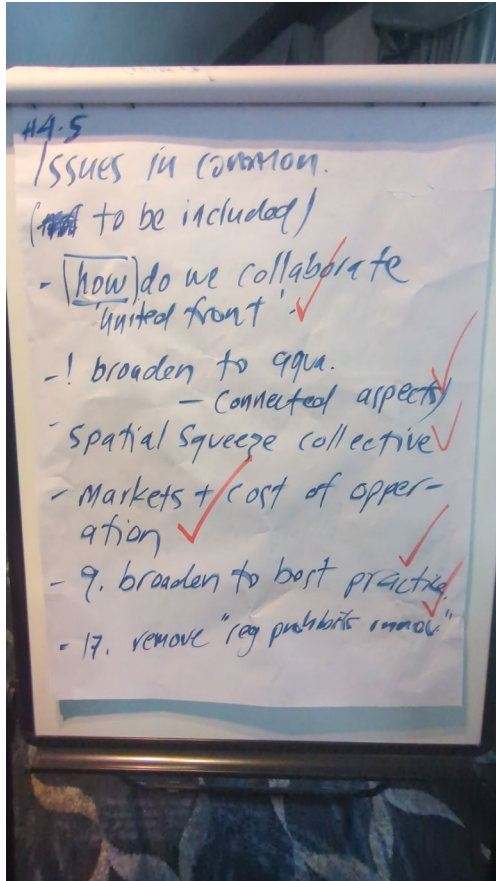 #4.5
Issues in common.
( to be included)
- (how) do we collaborate
'united front'.
- ! broaden to aqua.
- connected aspects)
- Spatial Squeeze collective
- Markets + cost of opper-
ation
- 9. broaden to best practice
- 17. remove "reg prohibits innov."